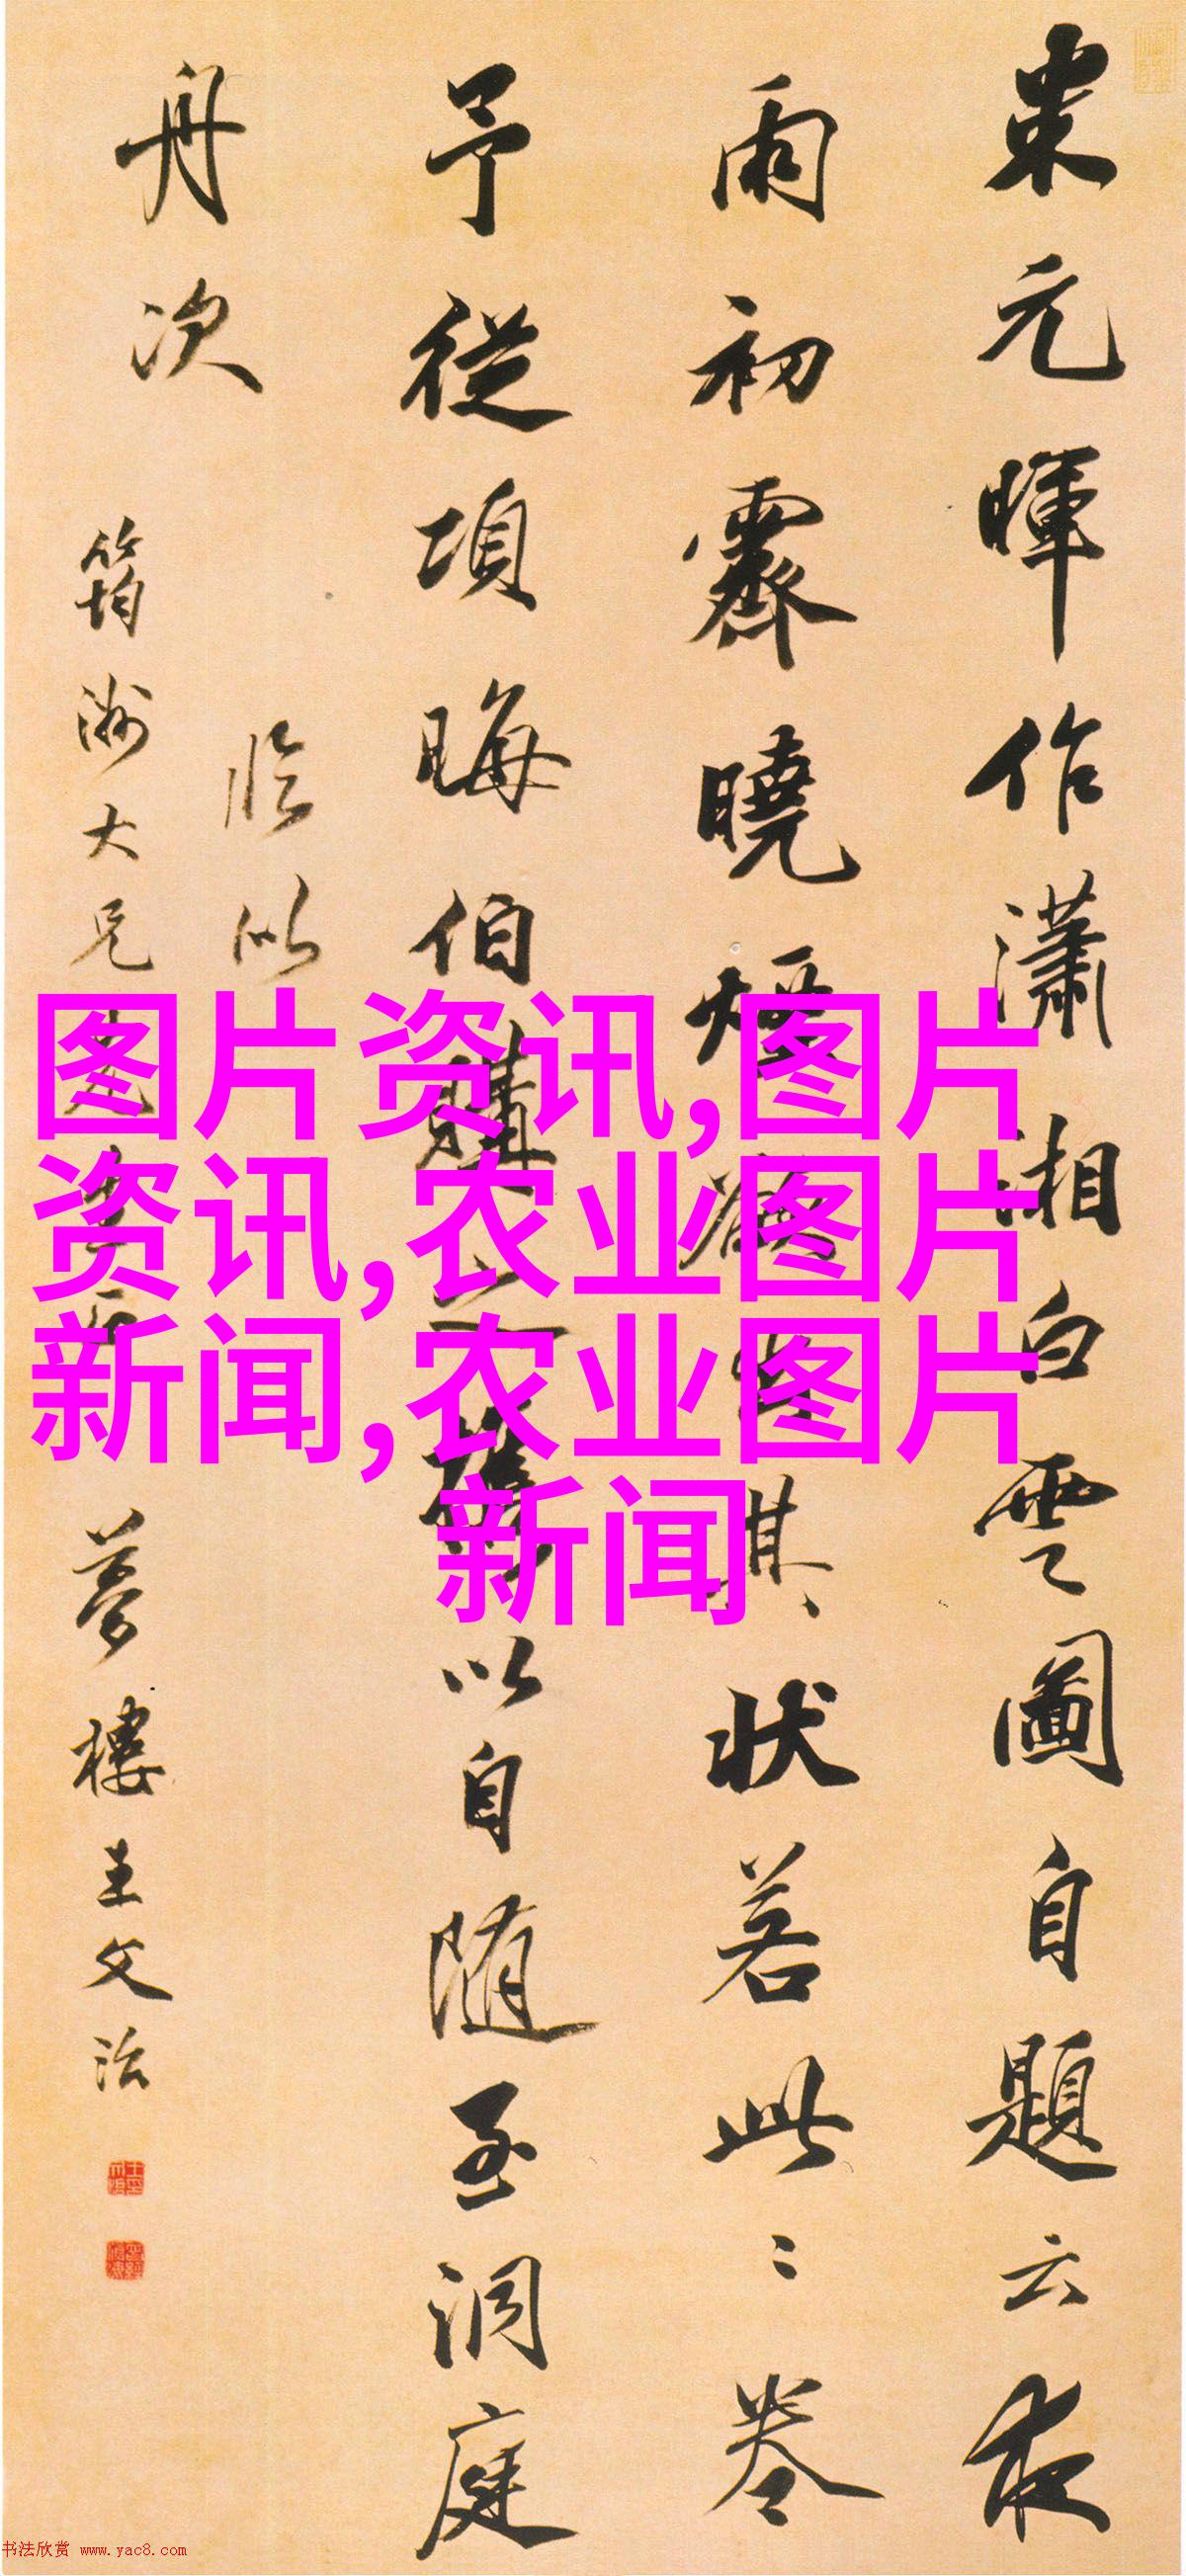 米元暉作瀟湘白雲圖自題云夜
雨初霽曉煙欲出其狀若此此卷
予從項晦伯購之携以自随至洞庭
舟次
臨似
筠洲大兄
夢樓王文治
图片资讯,图片
资讯,农业图片
新闻,农业图片
新闻
书法欣赏 www.yac8.com